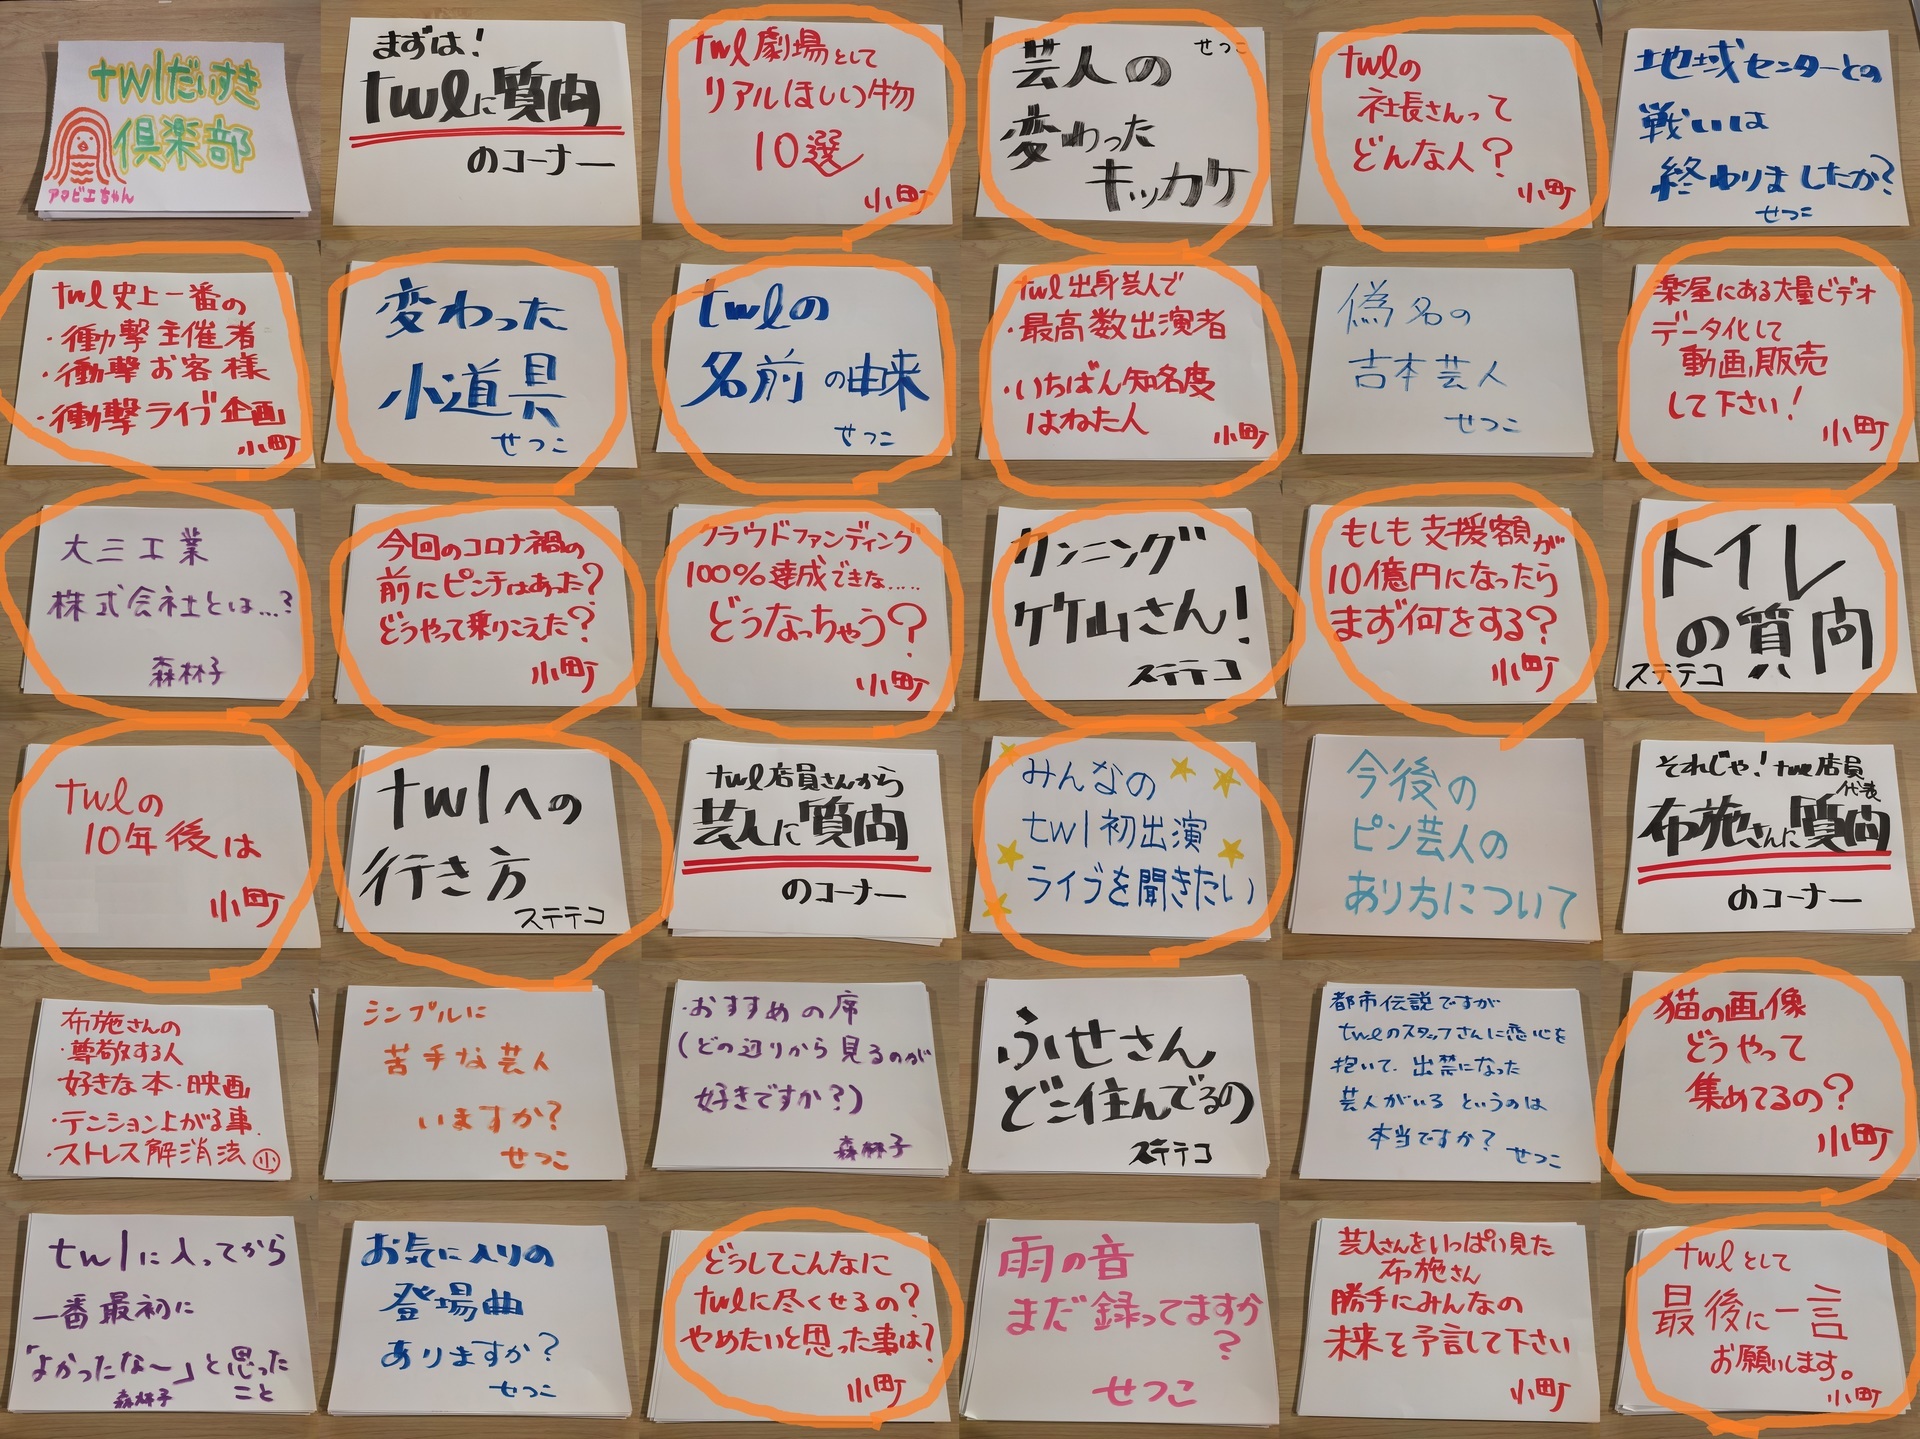 twlだいすき
倶楽部
アマビエちゃん
まずは!
twlに質問
のコーナー
twl劇場として
リアルほしい物
10選
小町
せつこ
芸人の
変わった
キッカケ
twlの
社長さんって
どんな人?
小町
地域センターとの
戦いは
終わりましたか?
せつこ
twl史上一番の
・衝撃主催者
・衝撃お客様
・衝撃ライブ企画
小町
変わった
小道具
せつこ
twlの
名前の由来
せつこ
twl出身芸人で
・最高数出演者
・いちばん知名度
はねた人
小町
偽名の
吉本芸人
せつこ
楽屋にある大量ビデオ
データ化して
動画販売
して下さい!
小町
大三工業
株式会社とは…?
森林子
今回のコロナ禍の
前にピンチはあった?
どうやって乗りこえた?
小町
クラウドファンディング
100%達成できな……
どうなっちゃう?
小町
カンニング
竹山さん!
ステテコ
もしも支援額が
10億円になったら
まず何をする?
小町
トイレ
の質問
ステテコ
twlの
10年後は
小町
twlへの
行き方
ステテコ
twl店員さんから
芸人に質問
のコーナー
みんなの
twl初出演
ライブを聞きたい
今後の
ピン芸人の
あり方について
それじゃ!twl店員
代表
布施さんに質問
のコーナー
布施さんの
・尊敬する人
好きな本・映画
・テンション上がる事
・ストレス解消法 小
シンプルに
苦手な芸人
いますか?
せつこ
・おすすめの席
(どの辺りから見るのが
好きですか?)
森林子
ふせさん
どこ住んでるの
ステテコ
都市伝説ですが
twlのスタッフさんに恋心を
抱いて、出禁になった
芸人がいるというのは
本当ですか?
せつこ
猫の画像
どうやって
集めてるの?
小町
twlに入ってから
一番最初に
「よかったな〜」と思った
こと
森林子
お気に入りの
登場曲
ありますか?
せつこ
どうしてこんなに
twlに尽くせるの?
やめたいと思った事は?
小町
雨の音
まだ録ってますか
?
せつこ
芸人さんをいっぱい見た
布施さん
勝手にみんなの
未来を予言して下さい
小町
twlとして
最後に一言
お願いします。
小町